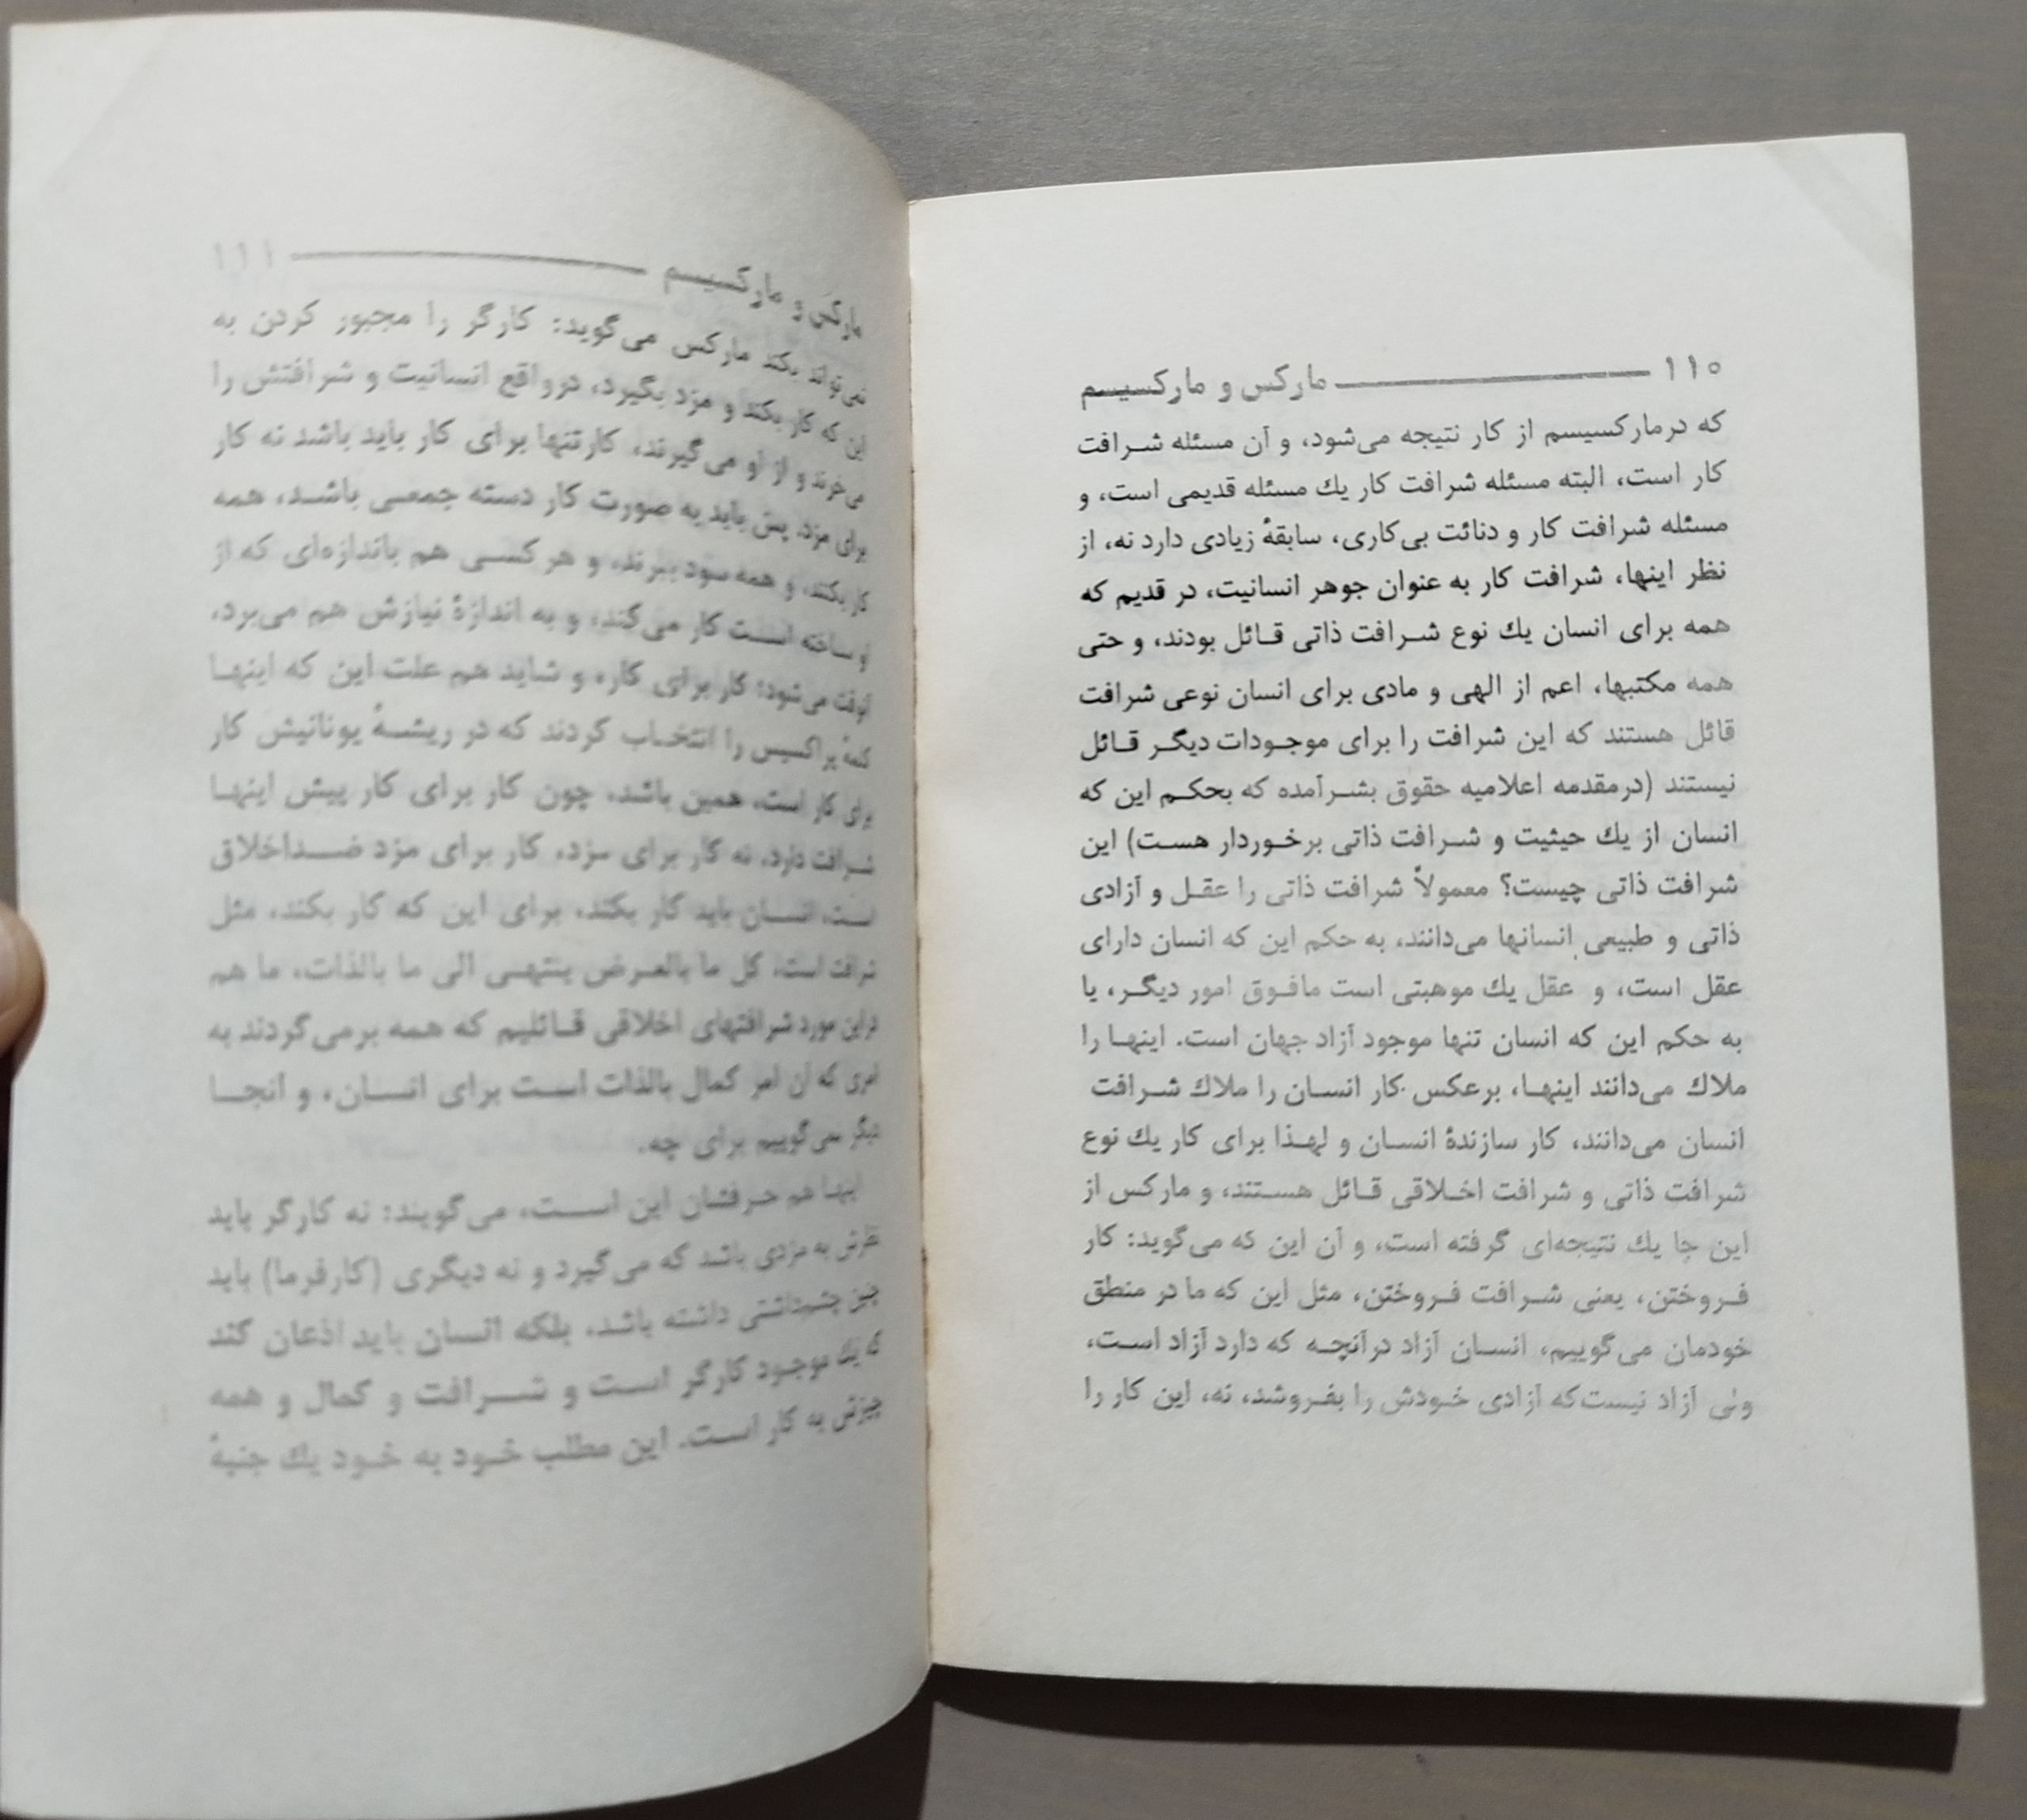 ۱۱۰ مارکس و مارکسیسم
که درمارکسیسم از کار نتیجه می‌شود، و آن مسئله شرافت
کار است، البته مسئله شرافت کار یك مسئله قدیمی است، و
مسئله شرافت کار و دنائت بی‌کاری، سابقهٔ زیادی دارد نه، از
نظر اینها، شرافت کار به عنوان جوهر انسانیت، در قدیم که
همه برای انسان یك نوع شرافت ذاتی قائل بودند، و حتی
همه مکتبها، اعم از الهی و مادی برای انسان نوعی شرافت
قائل هستند که این شرافت را برای موجودات دیگر قائل
نیستند (درمقدمه اعلامیه حقوق بشرآمده که بحکم این که
انسان از یك حیثیت و شرافت ذاتی برخوردار هست) این
شرافت ذاتی چیست؟ معمولاً شرافت ذاتی را عقل و آزادی
ذاتی و طبیعی انسانها می‌دانند، به حکم این که انسان دارای
عقل است، و عقل یك موهبتی است مافوق امور دیگر، یا
به حکم این که انسان تنها موجود آزاد جهان است. اینها را
ملاك می‌دانند اینها، برعکس کار انسان را ملاك شرافت
انسان می‌دانند، کار سازندهٔ انسان و لهذا برای کار یك نوع
شرافت ذاتی و شرافت اخلاقی قائل هستند، و مارکس از
این جا یك نتیجه‌ای گرفته است، و آن این که می‌گوید: کار
فروختن، یعنی شرافت فروختن، مثل این که ما در منطق
خودمان می‌گوییم، انسان آزاد درآنچه که دارد آزاد است،
ولی آزاد نیست‌که آزادی خودش را بفروشد، نه، این کار را
مارکس و مارکسیسم ۱۱۱
نمی‌تواند بکند مارکس می‌گوید: کارگر را مجبور کردن به
این که کار بکند و مزد بگیرد، درواقع انسانیت و شرافتش را
می‌خرند و از او می‌گیرند، کارتنها برای کار باید باشد نه کار
برای مزد. پس باید به صورت کار دسته جمعی باشد، همه
کار بکنند، و همه سود ببرند، و هر کسی هم باندازه‌ای که از
او ساخته است کار می‌کند، و به اندازهٔ نیازش هم می‌برد،
آنوقت می‌شود: کار برای کار، و شاید هم علت این که اینها
کلمهٔ پراکسیس را انتخاب کردند که در ریشهٔ یونانیش کار
برای کار است، همین باشد، چون کار برای کار پیش اینها
شرافت دارد، نه کار برای مزد، کار برای مزد ضداخلاق
است، انسان باید کار بکند، برای این که کار بکند، مثل
شرافت است، کل ما بالعرض ینتهی الی ما بالذات، ما هم
دراین مورد شرافتهای اخلاقی قائلیم که همه برمی‌گردند به
امری که آن امر کمال بالذات است برای انسان، و آنجا
دیگر نمی‌گوییم برای چه.
اینها هم حرفشان این است، می‌گویند: نه کارگر باید
نظرش به مزدی باشد که می‌گیرد و نه دیگری (کارفرما) باید
چنین چشمداشتی داشته باشد، بلکه انسان باید اذعان کند
که یك موجود کارگر است و شرافت و کمال و همه
چیزش به کار است. این مطلب خود به خود یك جنبهٔ